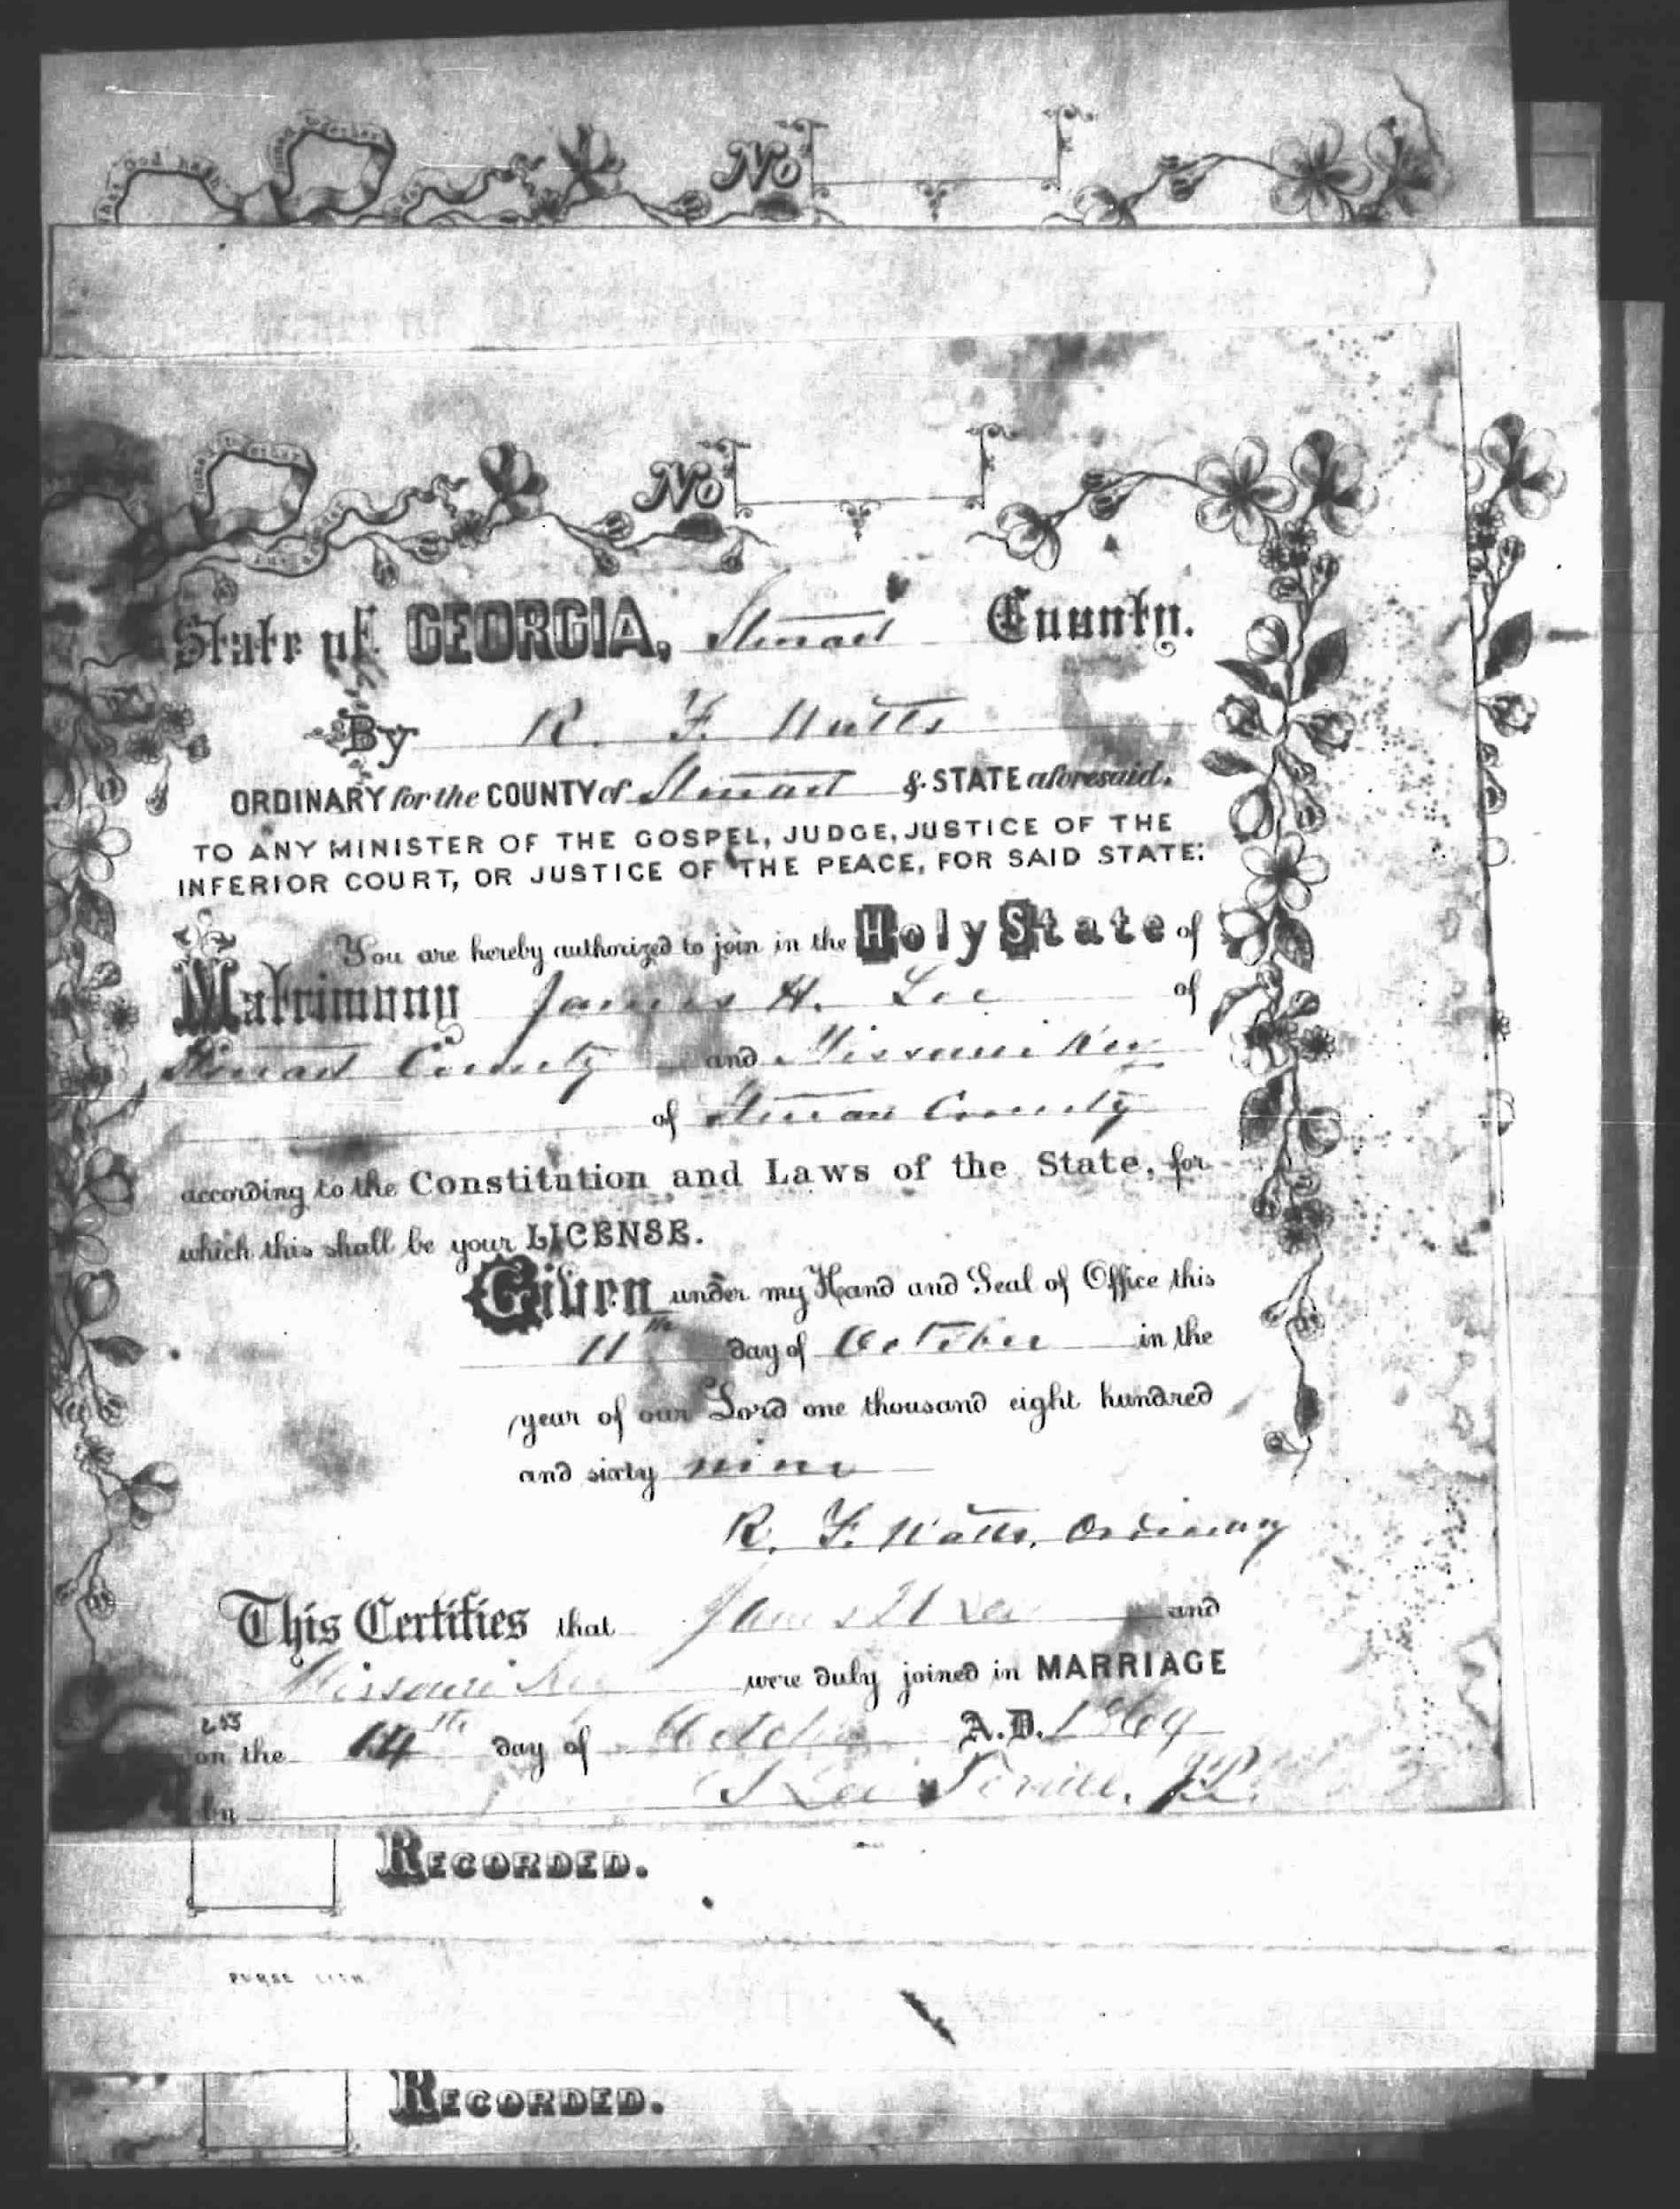 No
No
State of GEORGIA, Stewart County.
By R. F. Watts
ORDINARY for the COUNTY of Stewart & STATE aforesaid.
TO ANY MINISTER OF THE GOSPEL, JUDGE, JUSTICE OF THE
INFERIOR COURT, OR JUSTICE OF THE PEACE, FOR SAID STATE:
You are hereby authorized to join in the Holy State of
Matrimony James H. Lee of
Stewart County and Missouri
of Stewart County
according to the Constitution and Laws of the State, for
which this shall be your LICENSE.
Given under my Hand and Seal of Office this
11th day of October in the
year of our Lord one thousand eight hundred
and sixty nine
R. F. Watts, Ordinary
This Certifies that James H Lee and
Missouri were duly joined in MARRIAGE
on the 14th day of October A.D. 1869
by J.P.
RECORDED.
PURSE LITH.
RECORDED.